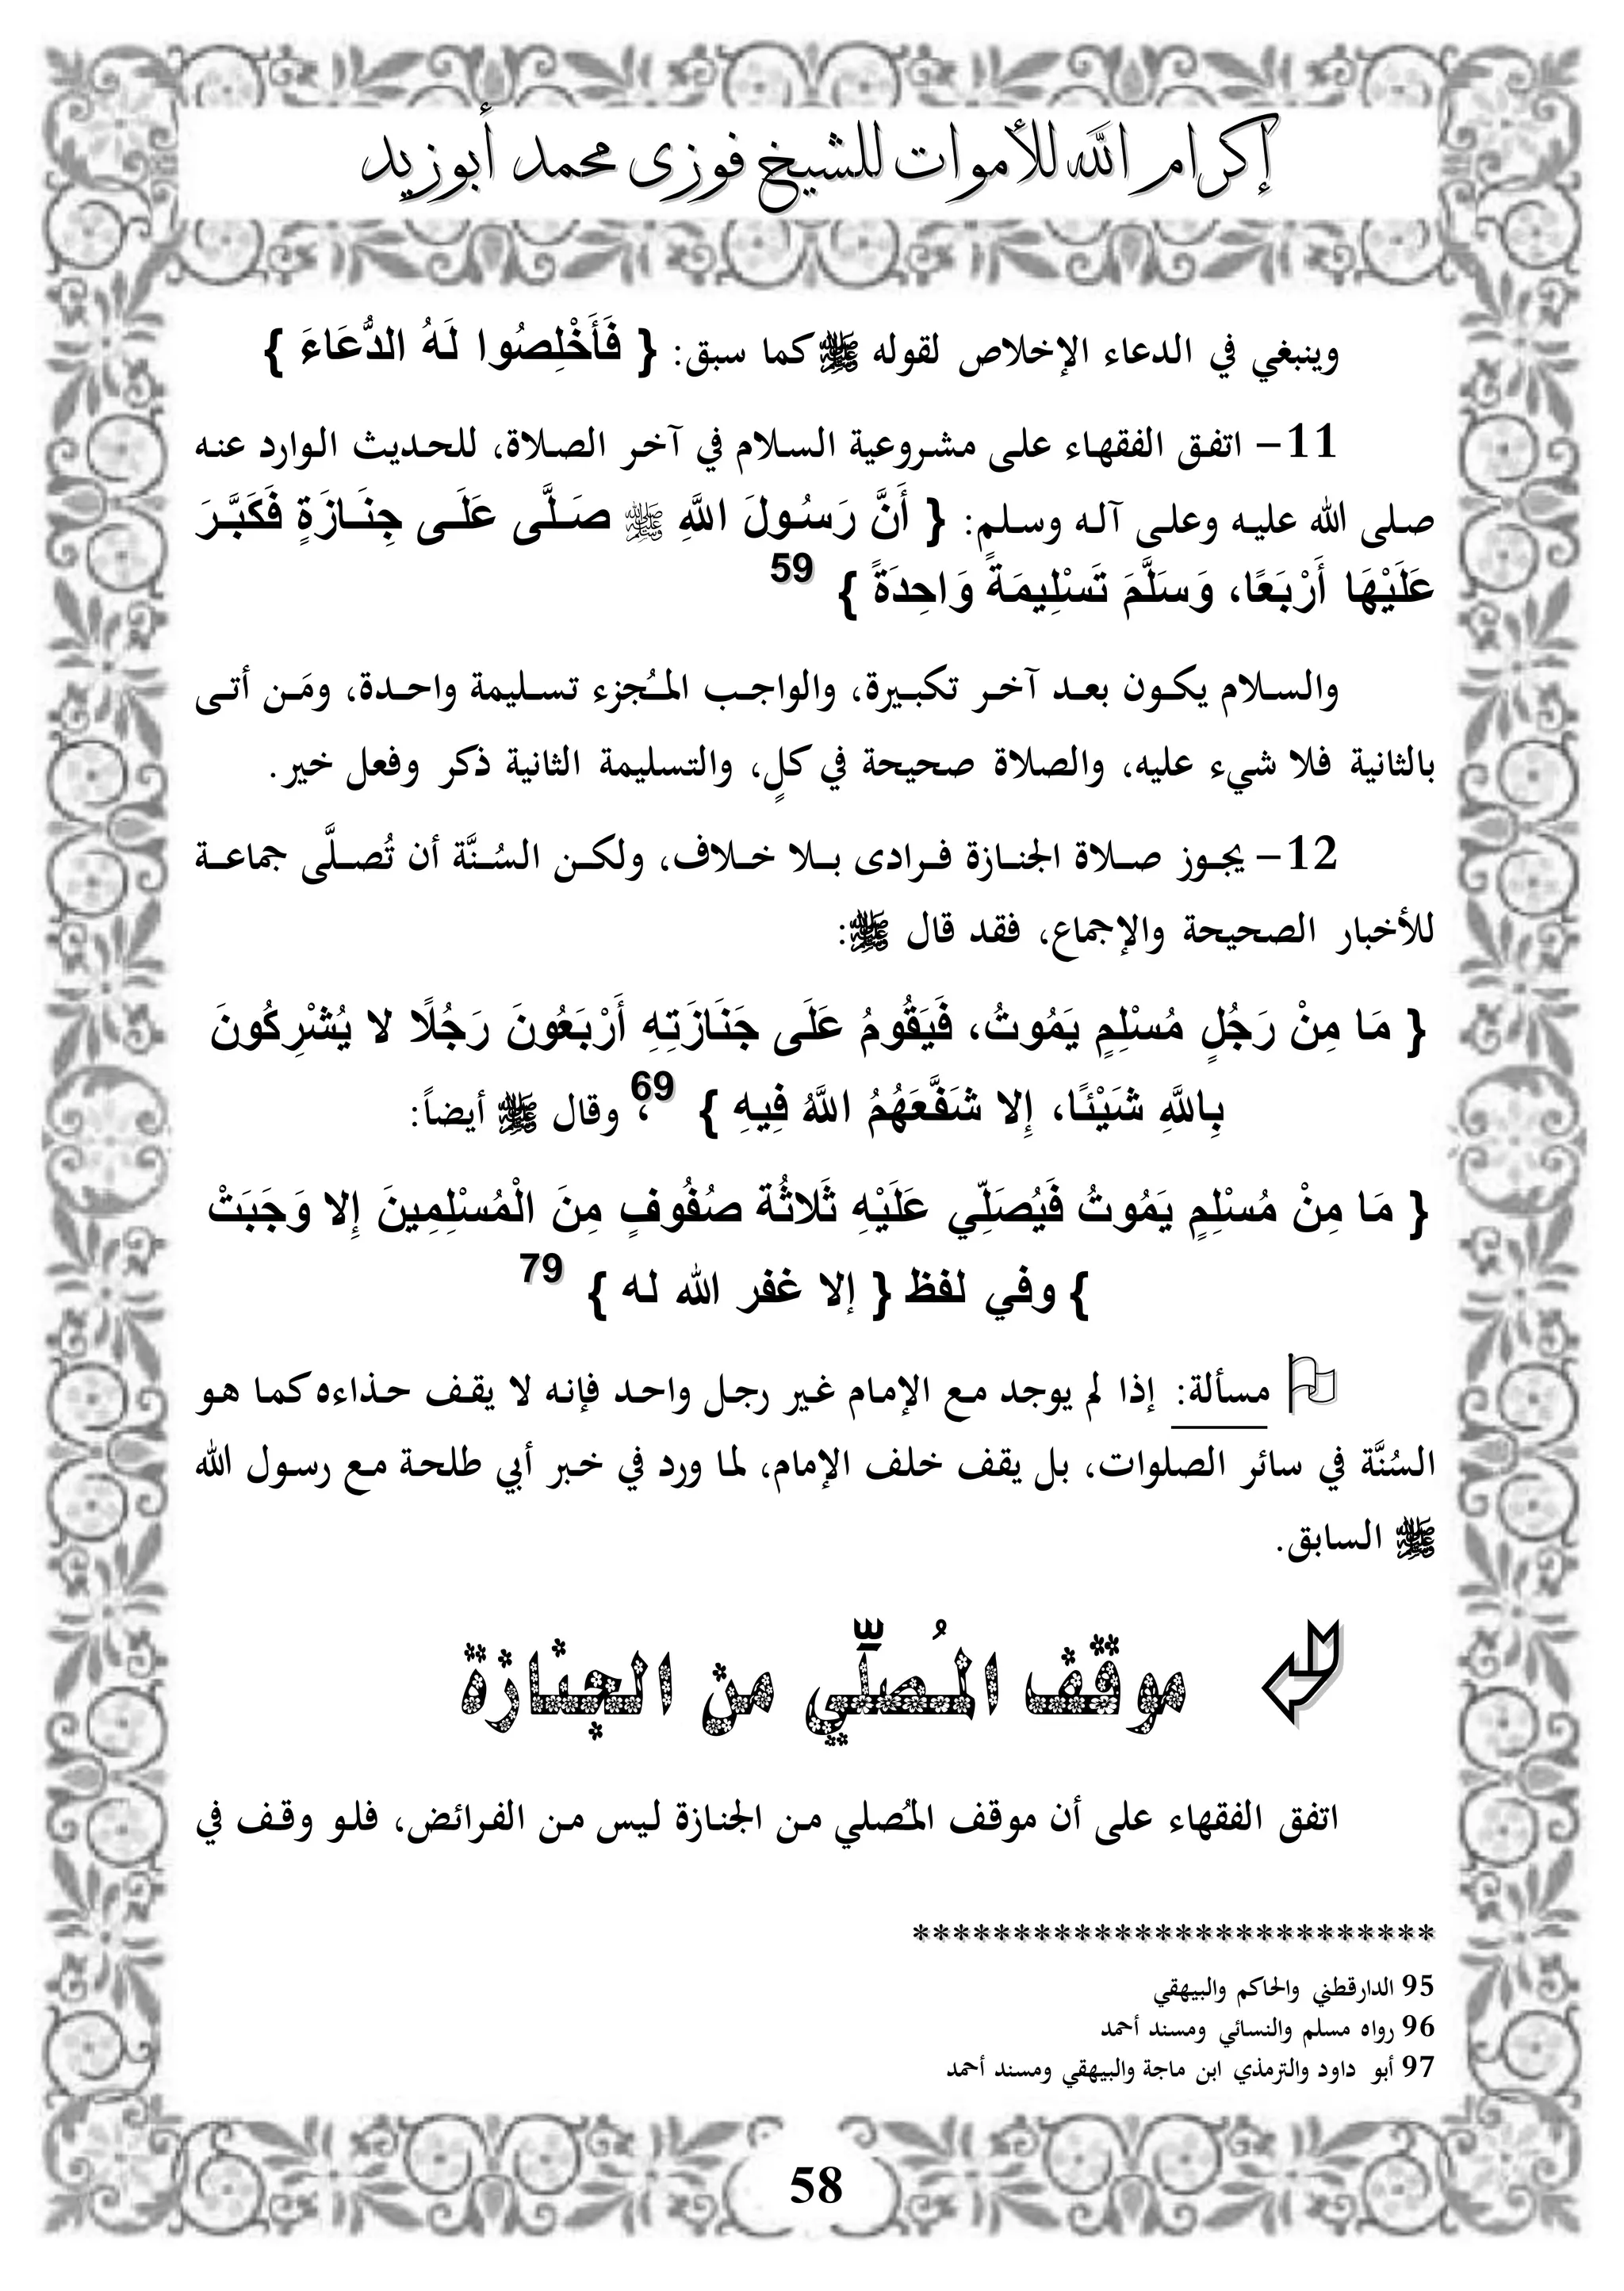 إكرام الله للأموات للشيخ فوزى محمد أبوزيد
وينبغي في الدعاء الإخلاص لقوله ﷺ كما سبق: { فَأَخْلِصُوا لَهُ الدُّعَاءَ }
11- اتفق الفقهاء على مشروعية السلام في آخر الصلاة، للحديث الوارد عنه
صلى الله عليه وعلى آله وسلم: { أَنَّ رَسُولَ اللَّهِ ﷺ صَلَّى عَلَى جِنَازَةٍ فَكَبَّرَ
عَلَيْهَا أَرْبَعًا، وَسَلَّمَ تَسْلِيمَةً وَاحِدَةً } 59
والسلام يكون بعد آخر تكبيرة، والواجب المُجزء تسليمة واحدة، ومَن أتى
بالثانية فلا شيء عليه، والصلاة صحيحة في كلٍ، والتسليمة الثانية ذكر وفعل خير.
12- يجوز صلاة الجنازة فرادى بلا خلاف، ولكن السُنَّة أن تُصلَّى جماعة
للأخبار الصحيحة والإجماع، فقد قال ﷺ:
{ مَا مِنْ رَجُلٍ مُسْلِمٍ يَمُوتُ، فَيَقُومُ عَلَى جَنَازَتِهِ أَرْبَعُونَ رَجُلًا لا يُشْرِكُونَ
بِاللَّهِ شَيْئًا، إِلا شَفَّعَهُمُ اللَّهُ فِيهِ } 69، وقال ﷺ أيضاً:
{ مَا مِنْ مُسْلِمٍ يَمُوتُ فَيُصَلِّي عَلَيْهِ ثَلاثُة صُفُوفٍ مِنَ الْمُسْلِمِينَ إِلا وَجَبَتْ
} وفي لفظ { إلا غفر الله له } 79
مسألة: إذا لم يوجد مع الإمام غير رجل واحد فإنه لا يقف حذاءه كما هو
السُنَّة في سائر الصلوات، بل يقف خلف الإمام، لما ورد في خبر أبي طلحة مع رسول الله
ﷺ السابق.
موقف المُصلِّي من الجنازة
اتفق الفقهاء على أن موقف المُصلي من الجنازة ليس من الفرائض، فلو وقف في
**************************
95 الدارقطني والحاكم والبيهقي
96 رواه مسلم والنسائي ومسند أحمد
97 أبو داود والترمذي ابن ماجة والبيهقي ومسند أحمد
58